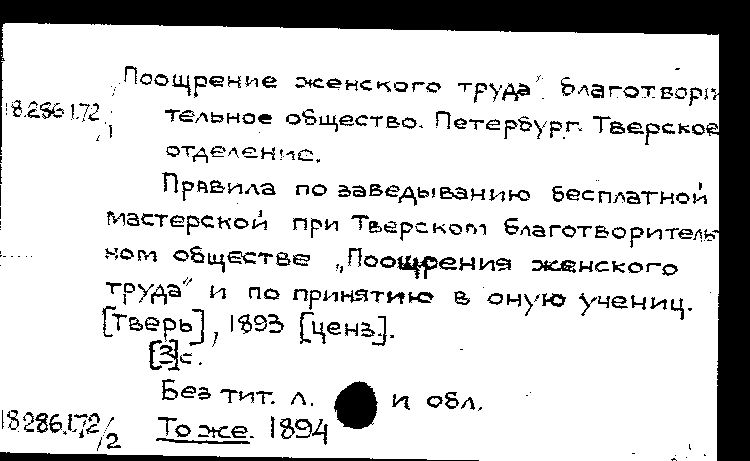 „Поощрение женского труда“. Благотвори
18.286.1.72/1 тельное общество. Петербург. Тверское
отделение.
Правила по заведыванию бесплатной
мастерской при Тверском благотворитель
ном обществе „Поощрения женского
труда“ и по принятию в оную учениц.
[Тверь], 1893 [ценз.].
[3]с.
Без тит. л. и обл.
18.286.1.72/2 То же. 1894